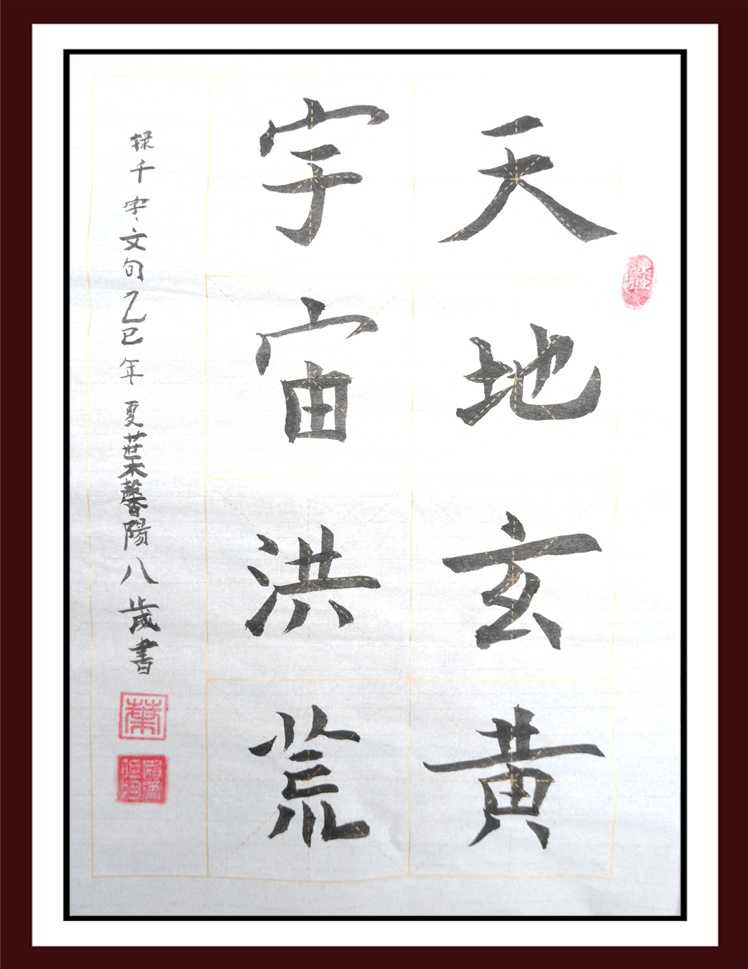 天地玄黄
宇宙洪荒
採千字文句乙巳年夏葉馨陽八歲書
葉